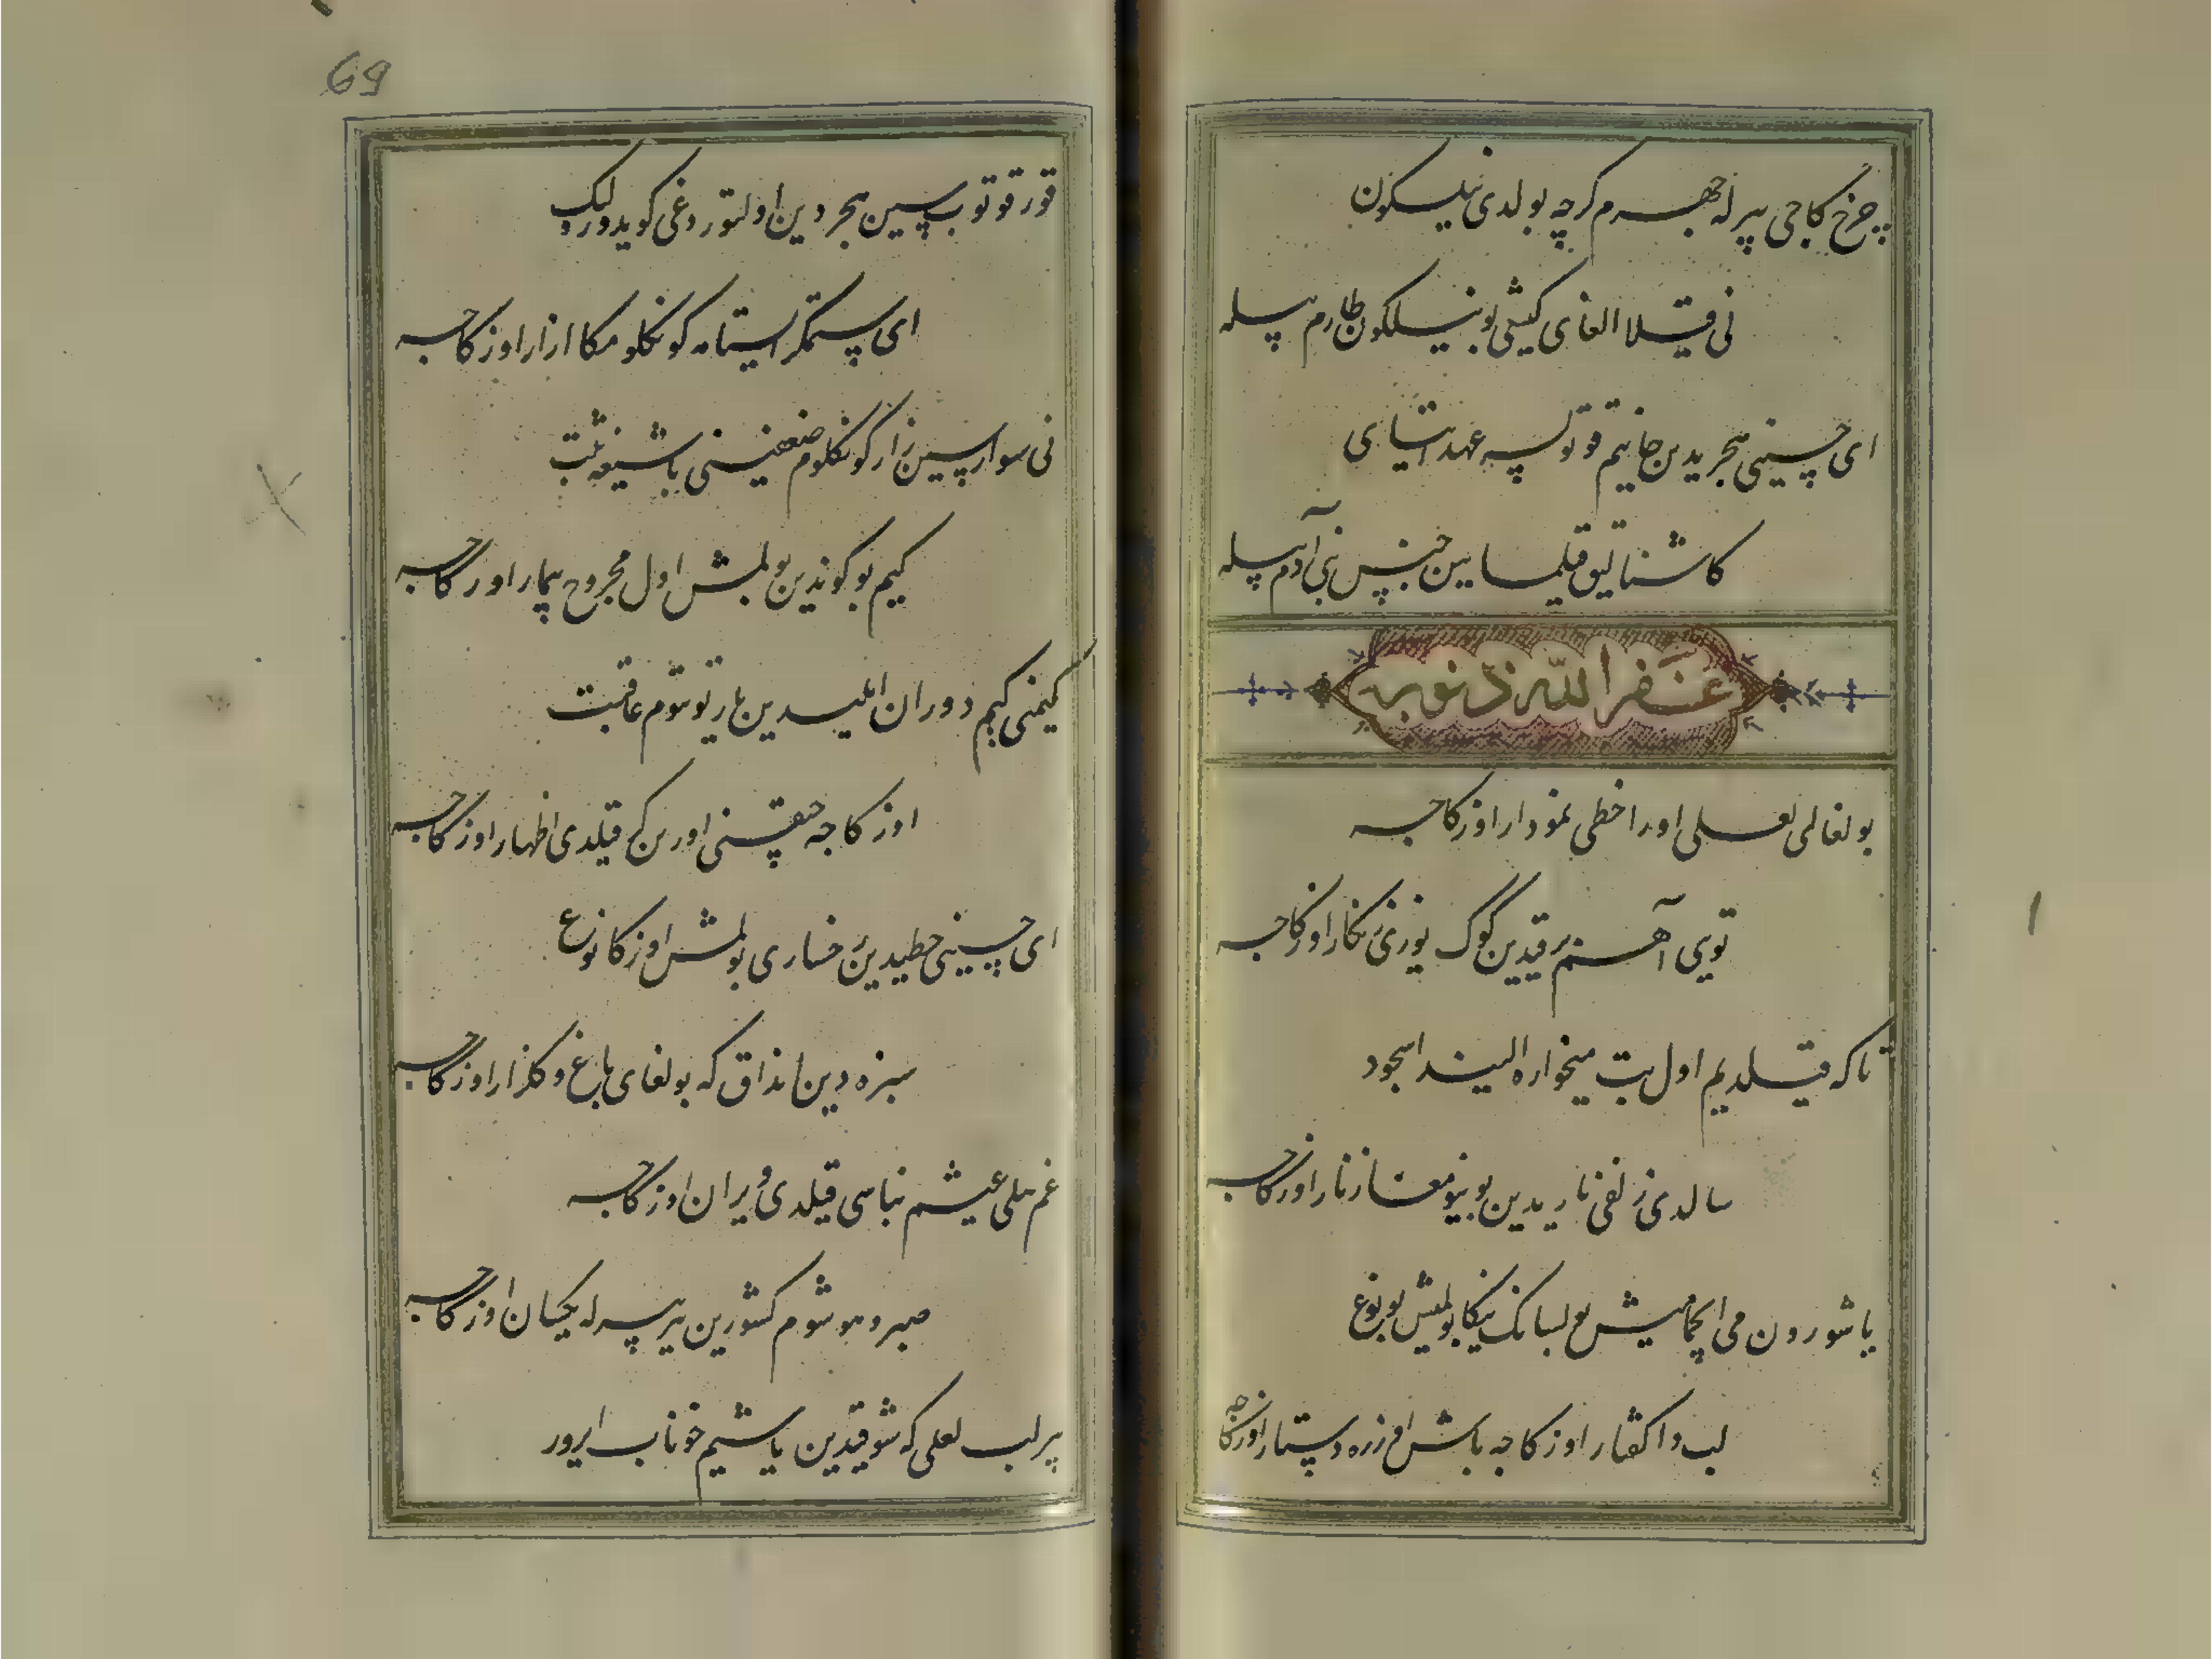 چرخ کاجی بیرله جهرم کرچه بولدی نیلکون
نی قیلا الغای کیشی بو نیلکون طارم بیله
ای حسینی هجریدین جانیم قوتولسه عهد ایتای
کاشنالیق قیلمایین جنس بنی آدم بیله
غفر الله ذنوبه
بولغالی لعلی اورا خطی نمودار اوزکاجه
تویی آهنم برقیدین کوک یوزی زنکار اوزکاجه
تا که قیلدیم اول بت میخواره الیندا سجود
سالدی زلفی تاریدین بوینومغا زنار اوزکاجه
یا شورون می ایجمامیش بولسانک نیکا بولمیش بو نوع
لب دا کفتار اوزکاجه باش اوزره دستار اوزکاجه
69
قورقوتوبسین هجردین اولتوردغی کویدوردیک
ای ستمکر ایستامه کونکلومکا ازار اوزکاجه
نی سوارسین زار کونکلوم ضعفینی باشیغه یت
کیم بو کوندین بولمش اول مجروح بیمار اوزکاجه
کیمنی کیم دوران ایلیدین یار توتوم عاقبت
اوزکاجه حقنی اورنکی قیلدی اظهار اوزکاجه
ای حسینی خطیدین رخساری بولمش اوزکا نوع
سبزه دین انداق که بولغای باغ و کلزار اوزکاجه
غم ییلی عیشیم بناسی قیلدی ویران اوزکاجه
صبر و هوشوم کشورین بیر بیرله یکسان اوزکاجه
بیر لب لعلی که شوقیدین یاشیم خوناب ایرور